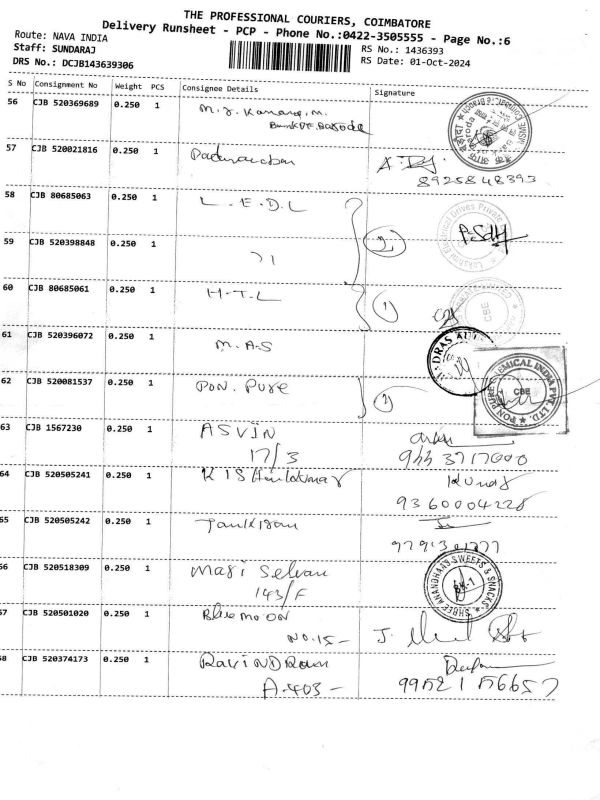 THE PROFESSIONAL COURIERS, COIMBATORE
Delivery Runsheet - PCP - Phone No.:0422-3505555 - Page No.:6
Route: NAVA INDIA
Staff: SUNDARAJ
RS No.: 1436393
DRS No.: DCJB143639306
RS Date: 01-Oct-2024
S No Consignment No Weight PCS Consignee Details Signature
56 CJB 520369689 0.250 1
57 CJB 520021816 0.250 1
8925848393
58 CJB 80685063 0.250 1 L.E.D.L
59 CJB 520398848 0.250 1
60 CJB 80685061 0.250 1 H.T.L
61 CJB 520396072 0.250 1 M.A.S
62 CJB 520081537 0.250 1 PON. PURE
PON PURE CHEMICAL INDIA PVT. LTD.
CBE
63 CJB 1567230 0.250 1 ASVIN
17/3
64 CJB 520505241 0.250 1
9360004228
65 CJB 520505242 0.250 1
66 CJB 520518309 0.250 1 Mari Selvan
143/F
SHREE ANANDHAAS SWEETS & SNACKS
67 CJB 520501020 0.250 1 Blue MOON
NO.15-
68 CJB 520374173 0.250 1 RaviNDRan
A-403-